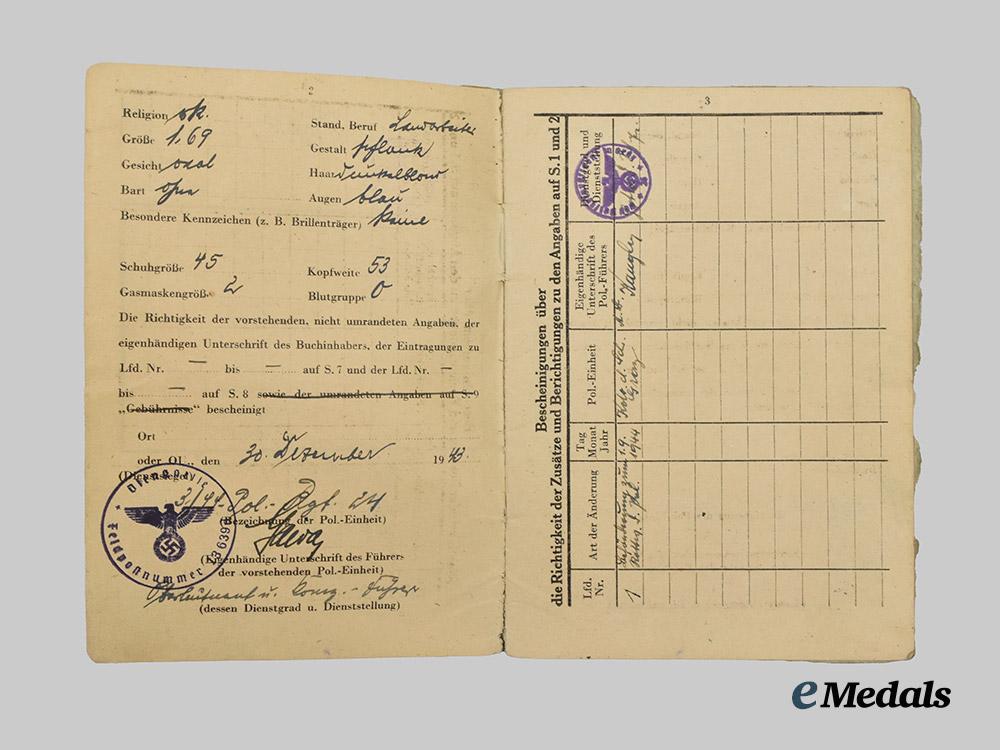 2
Religion ok.
Stand, Beruf Landarbeiter
Größe 1,69
Gestalt schlank
Gesicht oval
Haar dunkelblond
Bart ohne
Augen blau
Besondere Kennzeichen (z. B. Brillenträger) keine
Schuhgröße 45
Kopfweite 53
Gasmaskengröße 2
Blutgruppe O
Die Richtigkeit der vorstehenden, nicht umrandeten Angaben, der
eigenhändigen Unterschrift des Buchinhabers, der Eintragungen zu
Lfd. Nr. — bis — auf S. 7 und der Lfd. Nr. —
bis — auf S. 8 sowie der umrandeten Angaben auf S. 9
„Gebührnisse“ bescheinigt
Ort
oder OU., den 30. Dezember 1943.
(Dienstsiegel)
Feldpostnummer
Pol.-Rgt. 24
(Bezeichnung der Pol.-Einheit)
(Eigenhändige Unterschrift des Führers
der vorstehenden Pol.-Einheit)
Oberleutnant u. Komp.-Führer
(dessen Dienstgrad u. Dienststellung)
3
Bescheinigungen über
die Richtigkeit der Zusätze und Berichtigungen zu den Angaben auf S. 1 und 2
Lfd. Nr.
Art der Änderung
Tag Monat Jahr
Pol.-Einheit
Eigenhändige Unterschrift des Pol.-Führers
Dienstgrad und Dienststellung
1
Beförderung zum
1.9. 1944
eMedals